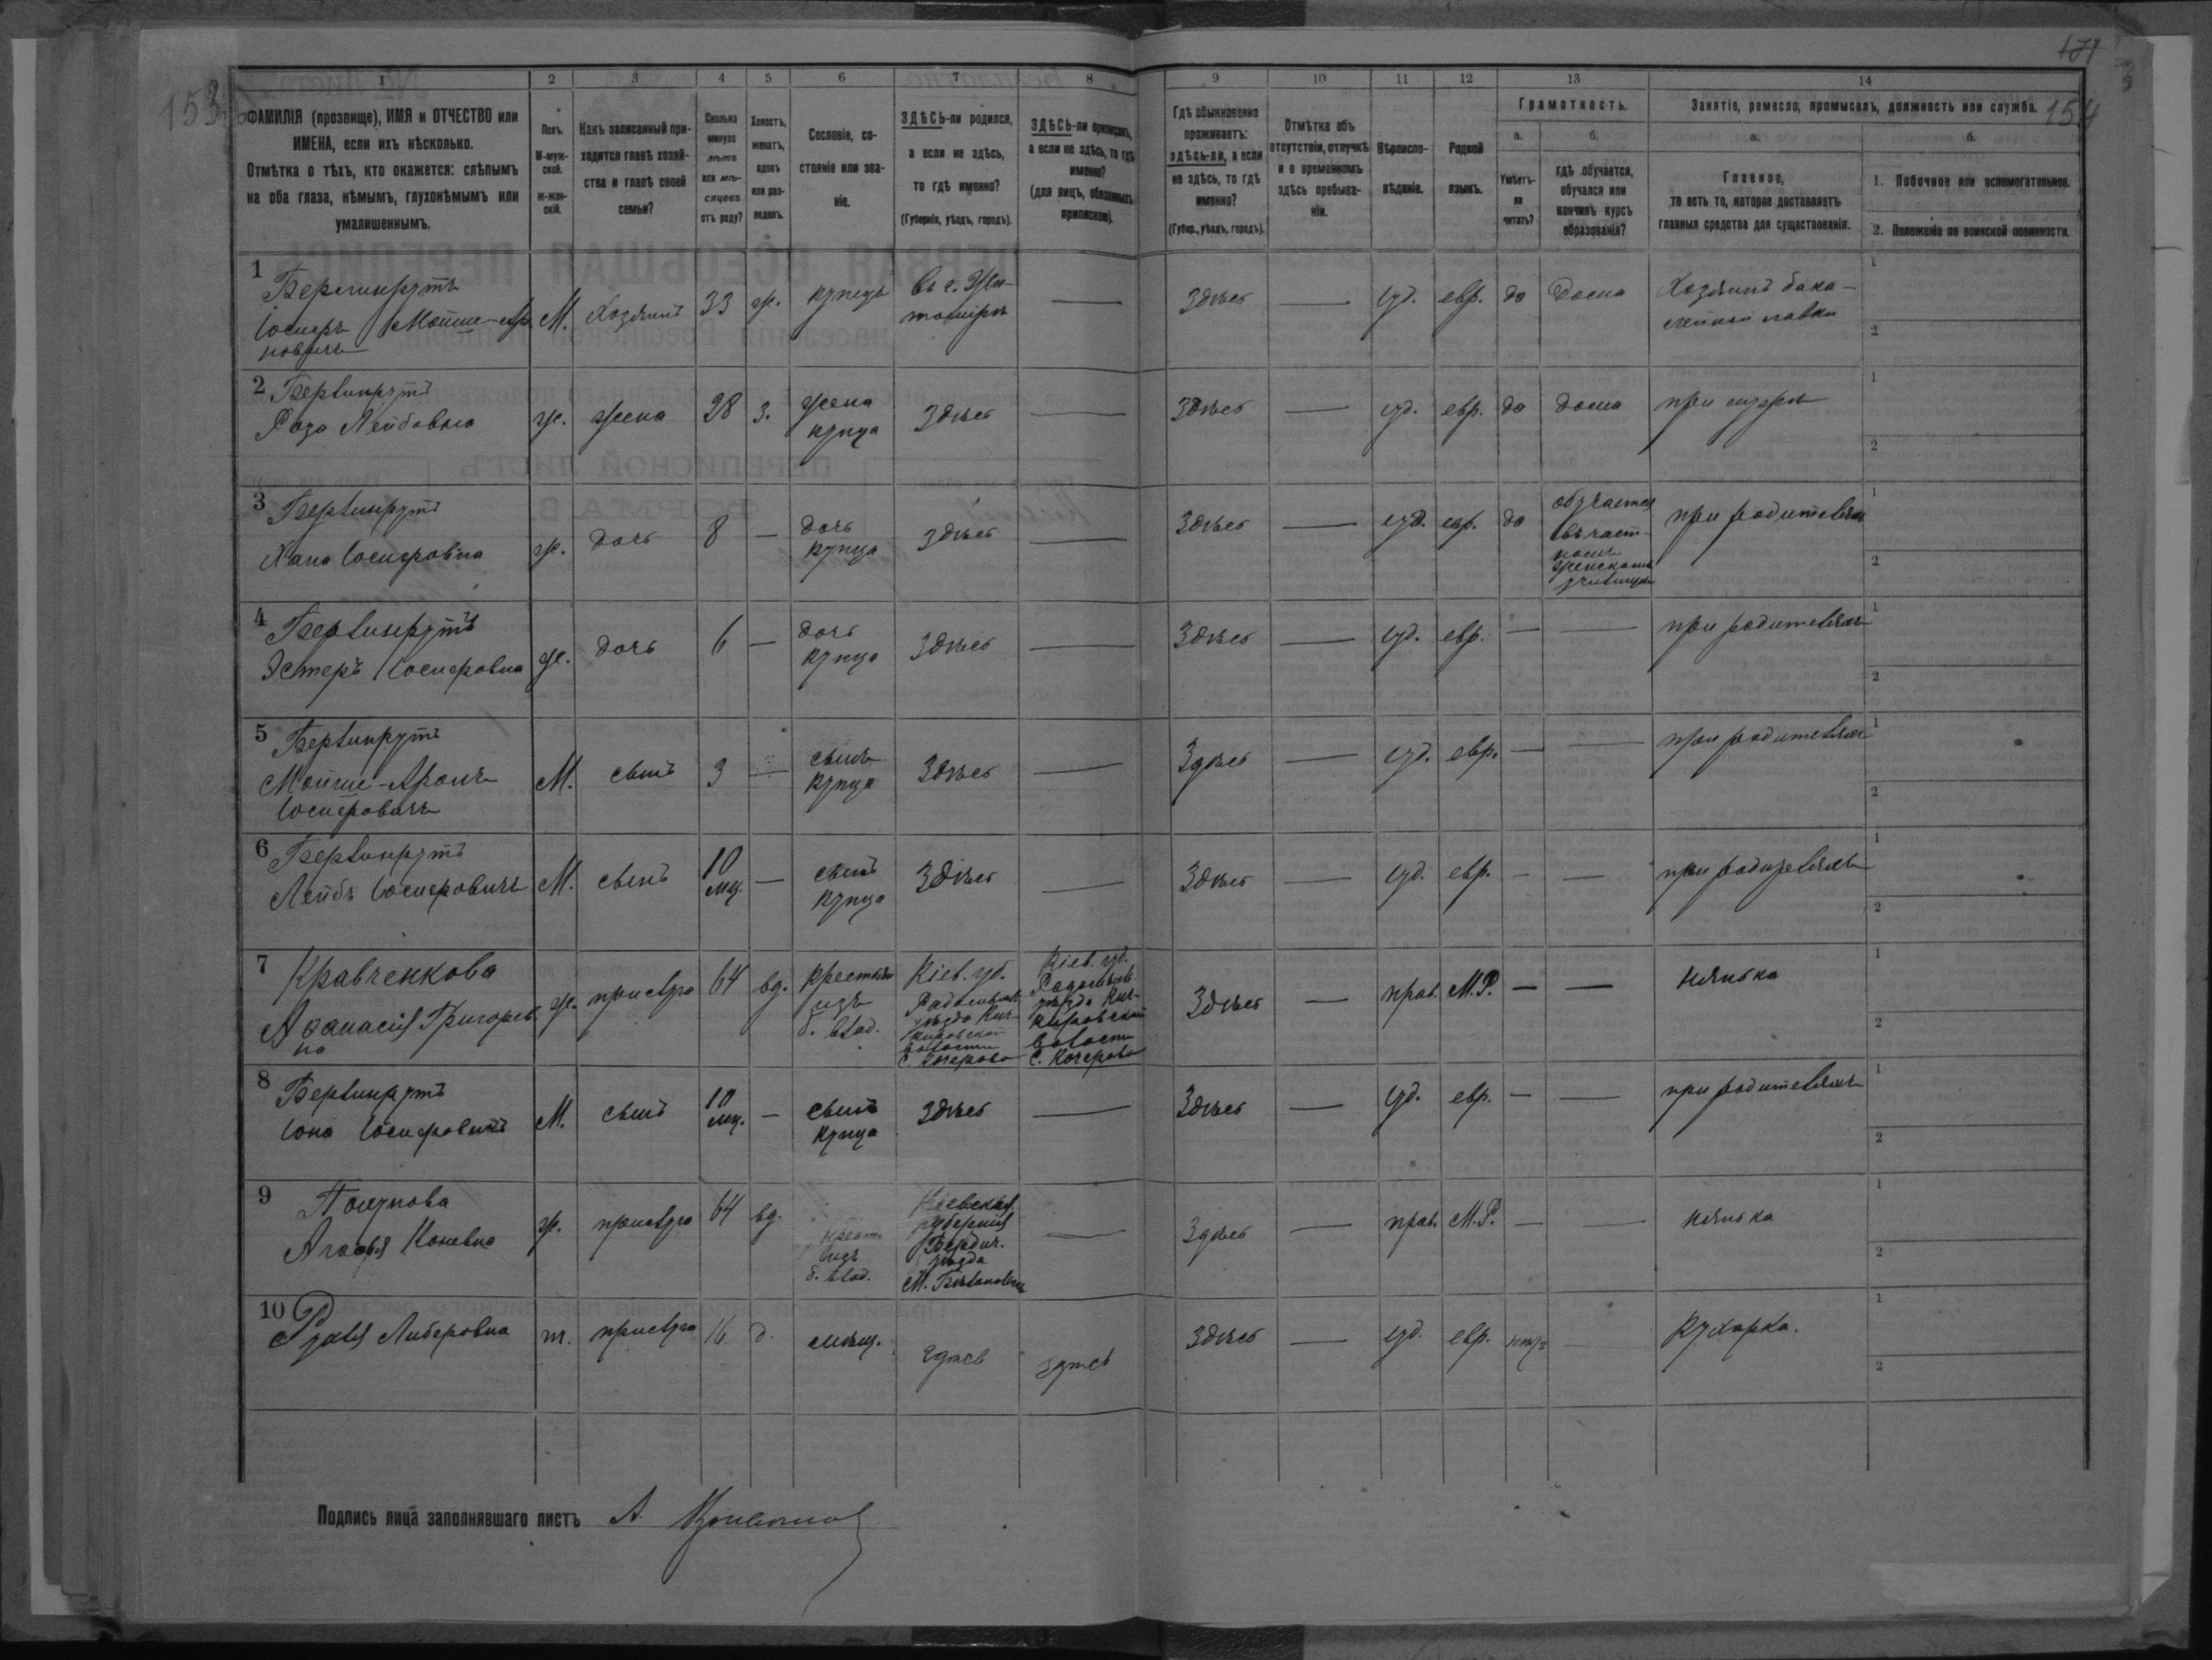 171
153
154
1 2 3 4 5 6 7 8 9 10 11 12 13 14
ФАМИЛІЯ (прозвище), ИМЯ и ОТЧЕСТВО или
ИМЕНА, если ихъ нѣсколько.
Отмѣтка о тѣхъ, кто окажется: слѣпымъ
на оба глаза, нѣмымъ, глухонѣмымъ или
умалишеннымъ.
Полъ.
М-муж-
ской.
ж-жен-
скій.
Какъ записанный при-
ходится главѣ хозяй-
ства и главѣ своей
семьи?
Сколько
минуло
лѣтъ
или мѣ-
сяцевъ
отъ роду?
Холостъ,
женатъ,
вдовъ
или раз-
веденъ.
Сословіе, со-
стояніе или зва-
ніе.
ЗДѢСЬ-ли родился,
а если не здѣсь,
то гдѣ именно?
(Губернія, уѣздъ, городъ).
ЗДѢСЬ-ли приписанъ,
а если не здѣсь, то гдѣ
именно?
(для лицъ, обязанныхъ
припискою).
Гдѣ обыкновенно
проживаетъ:
здѣсь-ли, а если
не здѣсь, то гдѣ
именно?
(Губер., уѣздъ, городъ).
Отмѣтка объ
отсутствіи, отлучкѣ
и о временномъ
здѣсь пребыва-
ніи.
Вѣроиспо-
вѣданіе.
Родной
языкъ.
Грамотность.
а.
Умѣетъ-
ли
читать?
б.
гдѣ обучается,
обучался или
кончилъ курсъ
образованія?
Занятіе, ремесло, промыселъ, должность или служба.
а.
Главное,
то есть то, которое доставляетъ
главныя средства для существованія.
б.
1. Побочное или вспомогательное.
2. Положеніе по воинской повинности.
1 Берлинрутъ
Іосифъ Мойше-Аро
новичъ
М. Хозяинъ 33 ж. купецъ
въ г. Жи-
томірѣ
— Здѣсь — іуд. евр. да Дома
Хозяинъ бака-
лейной лавки
2 Берлинрутъ
Роза Лейбовна
ж. жена 28 з.
жена
купца
Здѣсь — Здѣсь — іуд. евр. да дома при мужѣ
3 Берлинрутъ
Хана Іосифовна
ж. дочь 8 —
дочь
купца
Здѣсь — Здѣсь — іуд. евр. да
обучается
въ част-
номъ
женскомъ
училищѣ
при родителяхъ
4 Берлинрутъ
Эстеръ Іосифовна
ж. дочь 6 —
дочь
купца
Здѣсь — Здѣсь — іуд. евр. — — при родителяхъ
5 Берлинрутъ
Мойше-Аронъ
Іосифовичъ
М. сынъ 3 —
сынъ
купца
Здѣсь — Здѣсь — іуд. евр. — — при родителяхъ
6 Берлинрутъ
Лейбъ Іосифовичъ
М. сынъ
10
мц.
—
сынъ
купца
Здѣсь — Здѣсь — іуд. евр. — — при родителяхъ
7 Кравченкова
Афанасія Григорьев
на
ж. прислуга 64 вд.
крестьян.
изъ
б. влад.
Кіев. губ.
Радомысльс.
уѣзда
волости
с. Кочерово
Кіев. губ.
Радомысльс.
уѣзда
волости
с. Кочерово
Здѣсь — прав. М.Р. — — нянька
8 Берлинрутъ
Іона Іосифовичъ
М. сынъ
10
мц.
—
сынъ
купца
Здѣсь — Здѣсь — іуд. евр. — — при родителяхъ
9
Агафія
ж. прислуга 64 вд.
крест.
изъ
б. влад.
Кіевская
губернія
Бердич.
уѣзда
— Здѣсь — прав. М.Р. — — нянька
10 Либеровна
прислуга 16 д. мѣщ.
Здѣсь — іуд. евр. — Кухарка.
Подпись лица заполнявшаго листъ А.